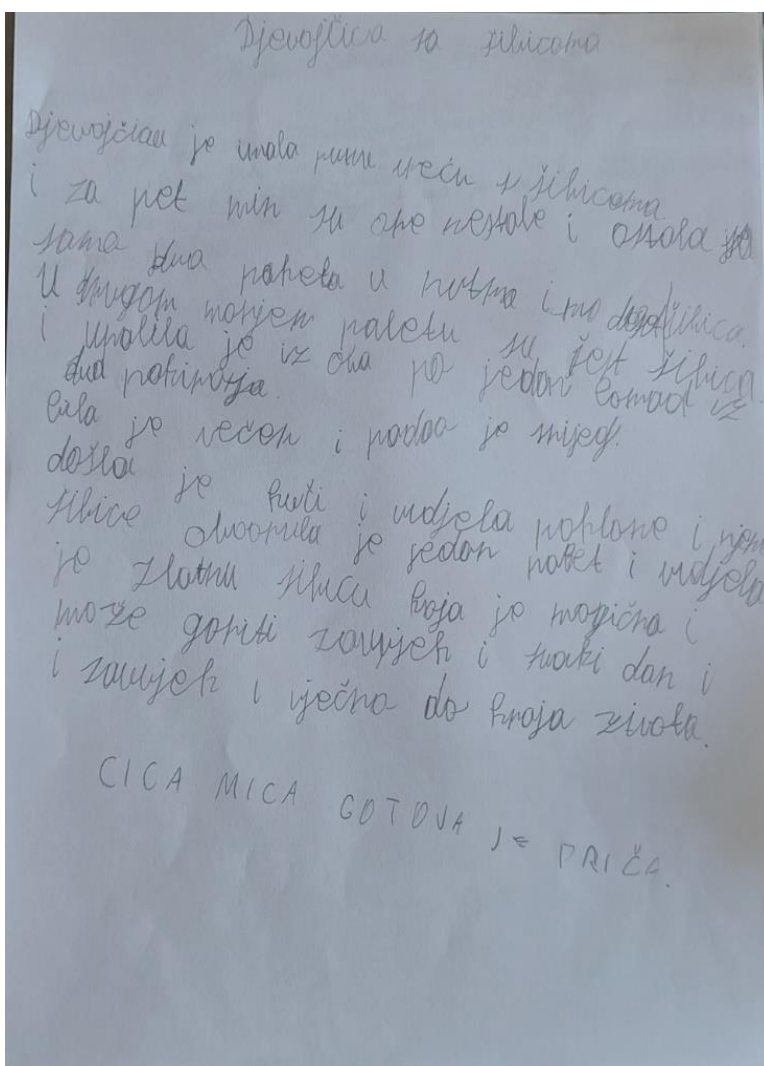 Djevojčica sa šibicama
Djevojčica je imala punu vreću s šibicama
i za pet min su one nestale i ostala
sama dva paketa u
U drugom manjem paketu su šest šibica.
i upalila je iz oba po jedan komad iz
dva pakiranja.
bila je večer i padao je snijeg.
došla je kući i vidjela poklone i
šibice otvorila je jedan paket i vidjela
je zlatnu šibicu koja je magična i
može goriti zauvijek i svaki dan i
i zauvijek i vječno do kraja života.
CICA MICA GOTOVA JE PRIČA.